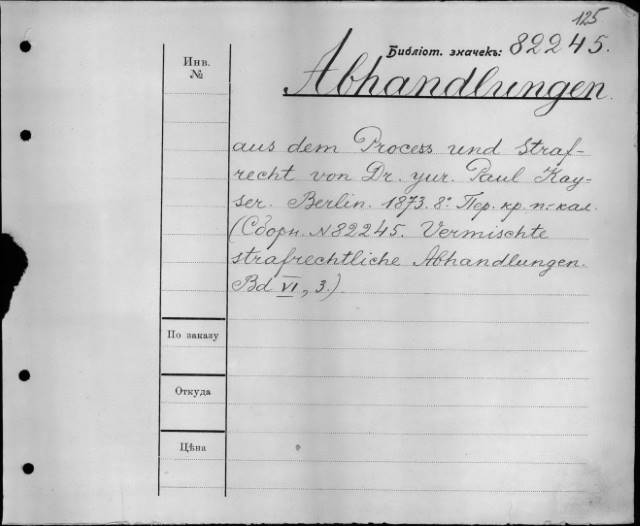 125
Библіот. значекъ: 82245.
Инв.
№
Abhandlungen
aus dem Process und Straf-
recht von Dr. yur. Paul Kay-
ser. Berlin. 1873. 8º. Пер. кр. п-кал.
(Сборн. № 82245. Vermischte
strafrechtliche Abhandlungen.
Bd VI, 3.)
По заказу
Откуда
Цѣна